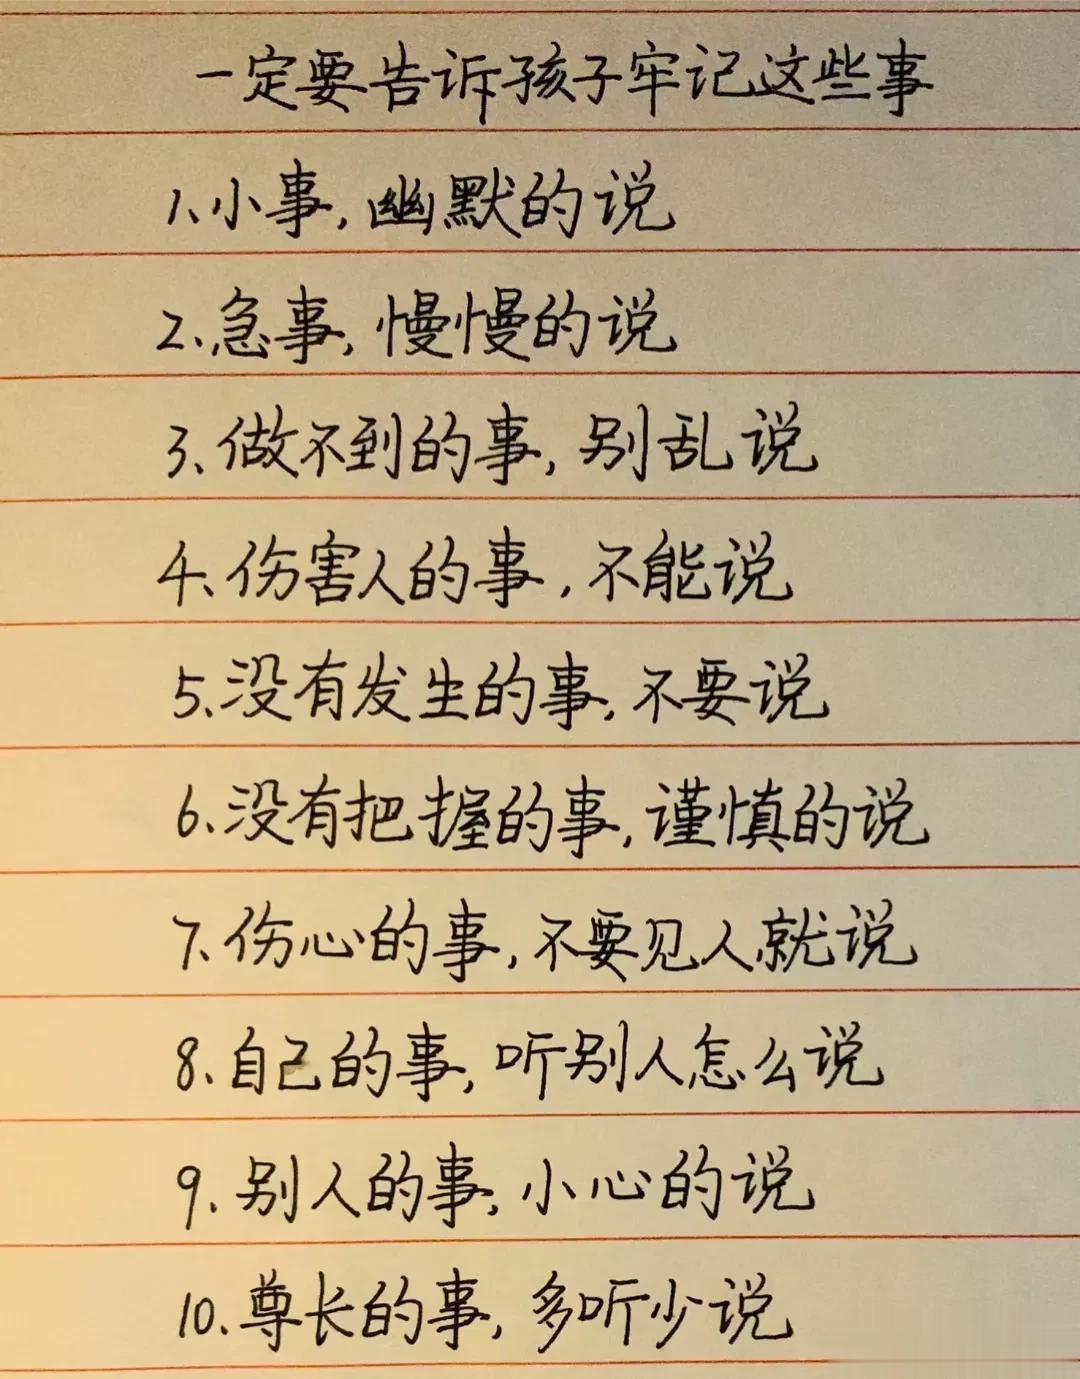 一定要告诉孩子牢记这些事
1、小事,幽默的说
2、急事,慢慢的说
3、做不到的事,别乱说
4、伤害人的事,不能说
5、没有发生的事,不要说
6、没有把握的事,谨慎的说
7、伤心的事,不要见人就说
8、自己的事,听别人怎么说
9、别人的事,小心的说
10、尊长的事,多听少说